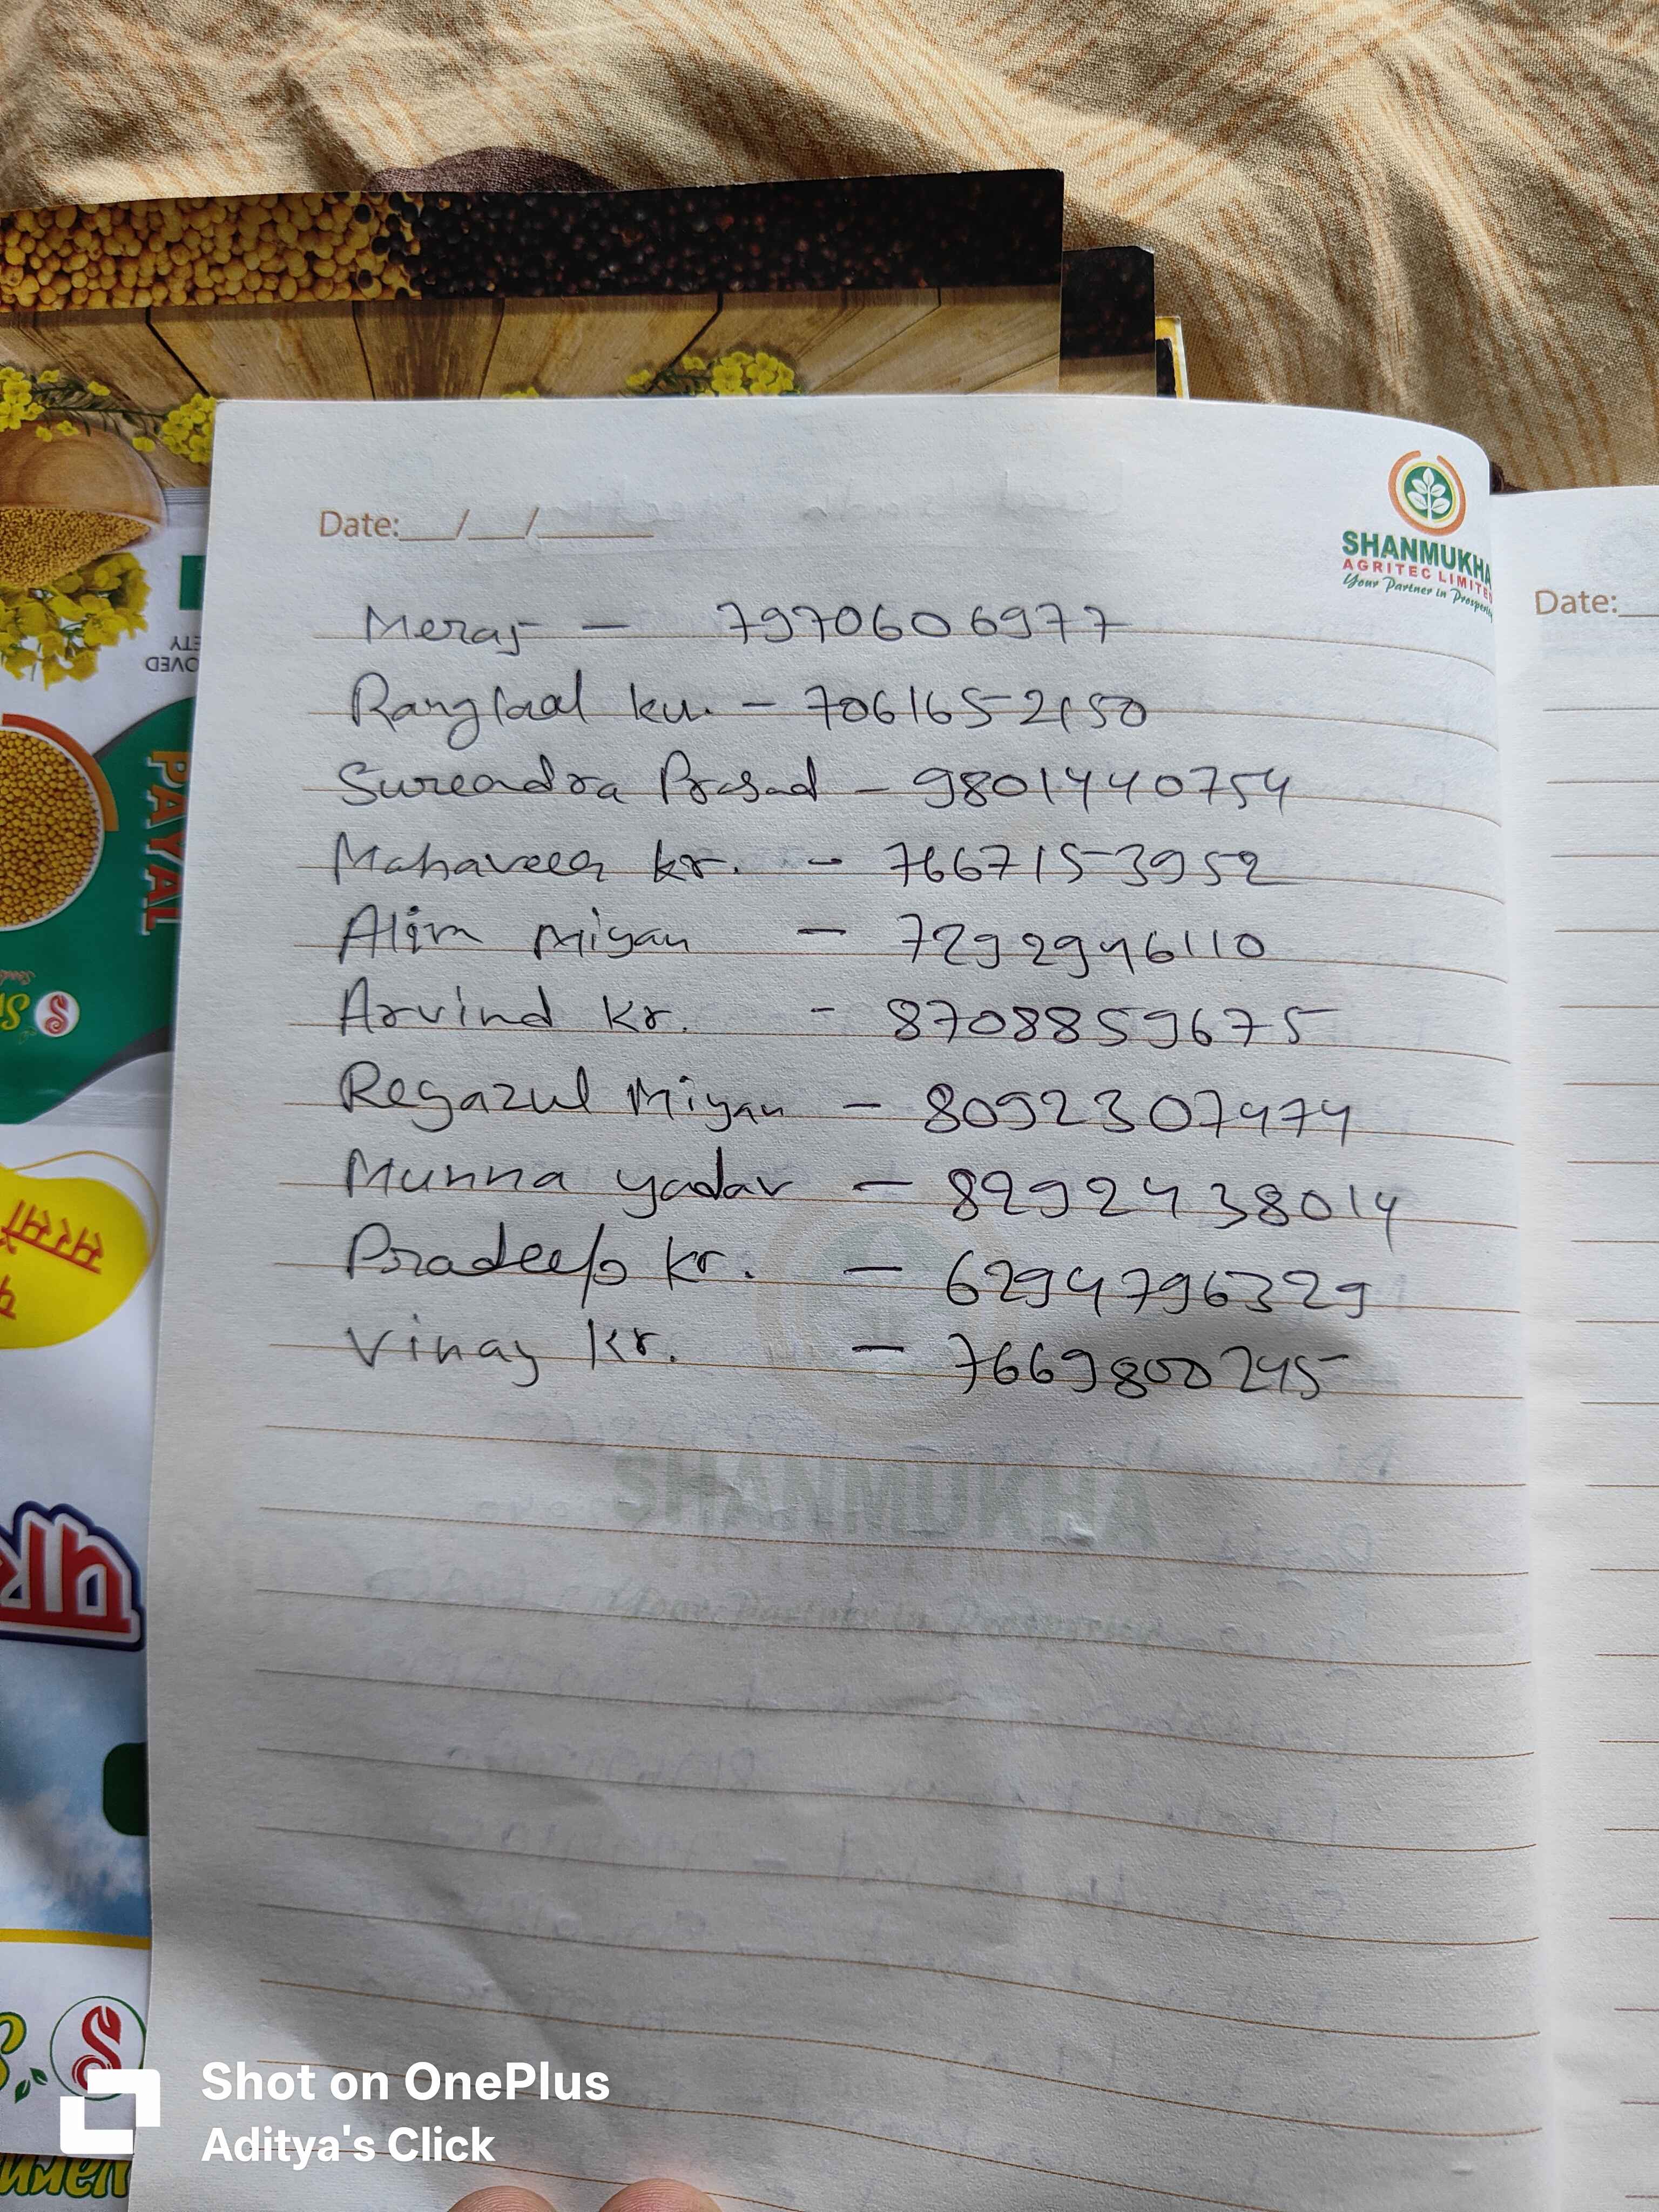 Date:__/__/____
SHANMUKHA
AGRITEC LIMITED
Your Partner in Prosperity
Date:_
Meraj - 7970606977
Ranglaal ku. - 7061652150
Surendra Prasad - 9801440754
Mahaveer kr. - 7667153952
Alim Miyan - 7292946110
Arvind Kr. - 8708859675
Regazul Miyan - 8092307474
Munna yadav - 8292438014
Pradeep Kr. - 6294796329
Vinay Kr. - 7669800245
SHANMUKHA
Your Partner in Prosperity
PAYAL
सरसों
Shot on OnePlus
Aditya's Click